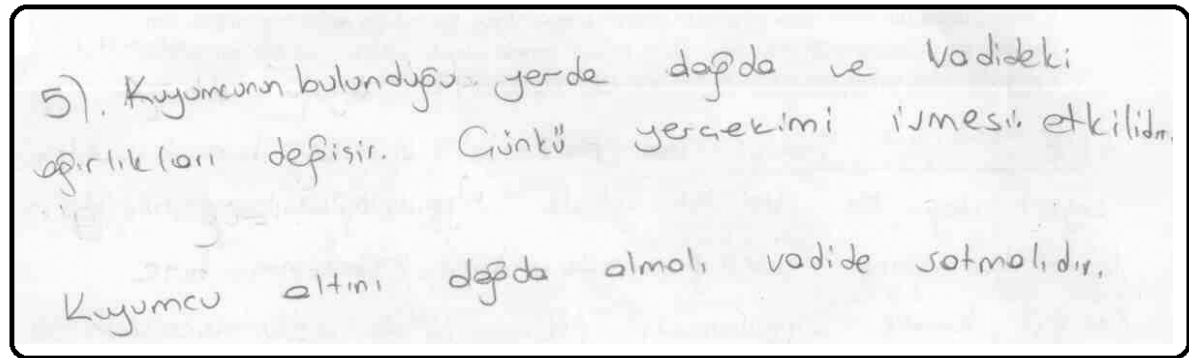 5). Kuyumcunun bulunduğu yerde dağda ve vadideki
ağırlıkları değişir. Çünkü yerçekimi ivmesi etkilidir.
Kuyumcu altını dağda almalı vadide satmalıdır.